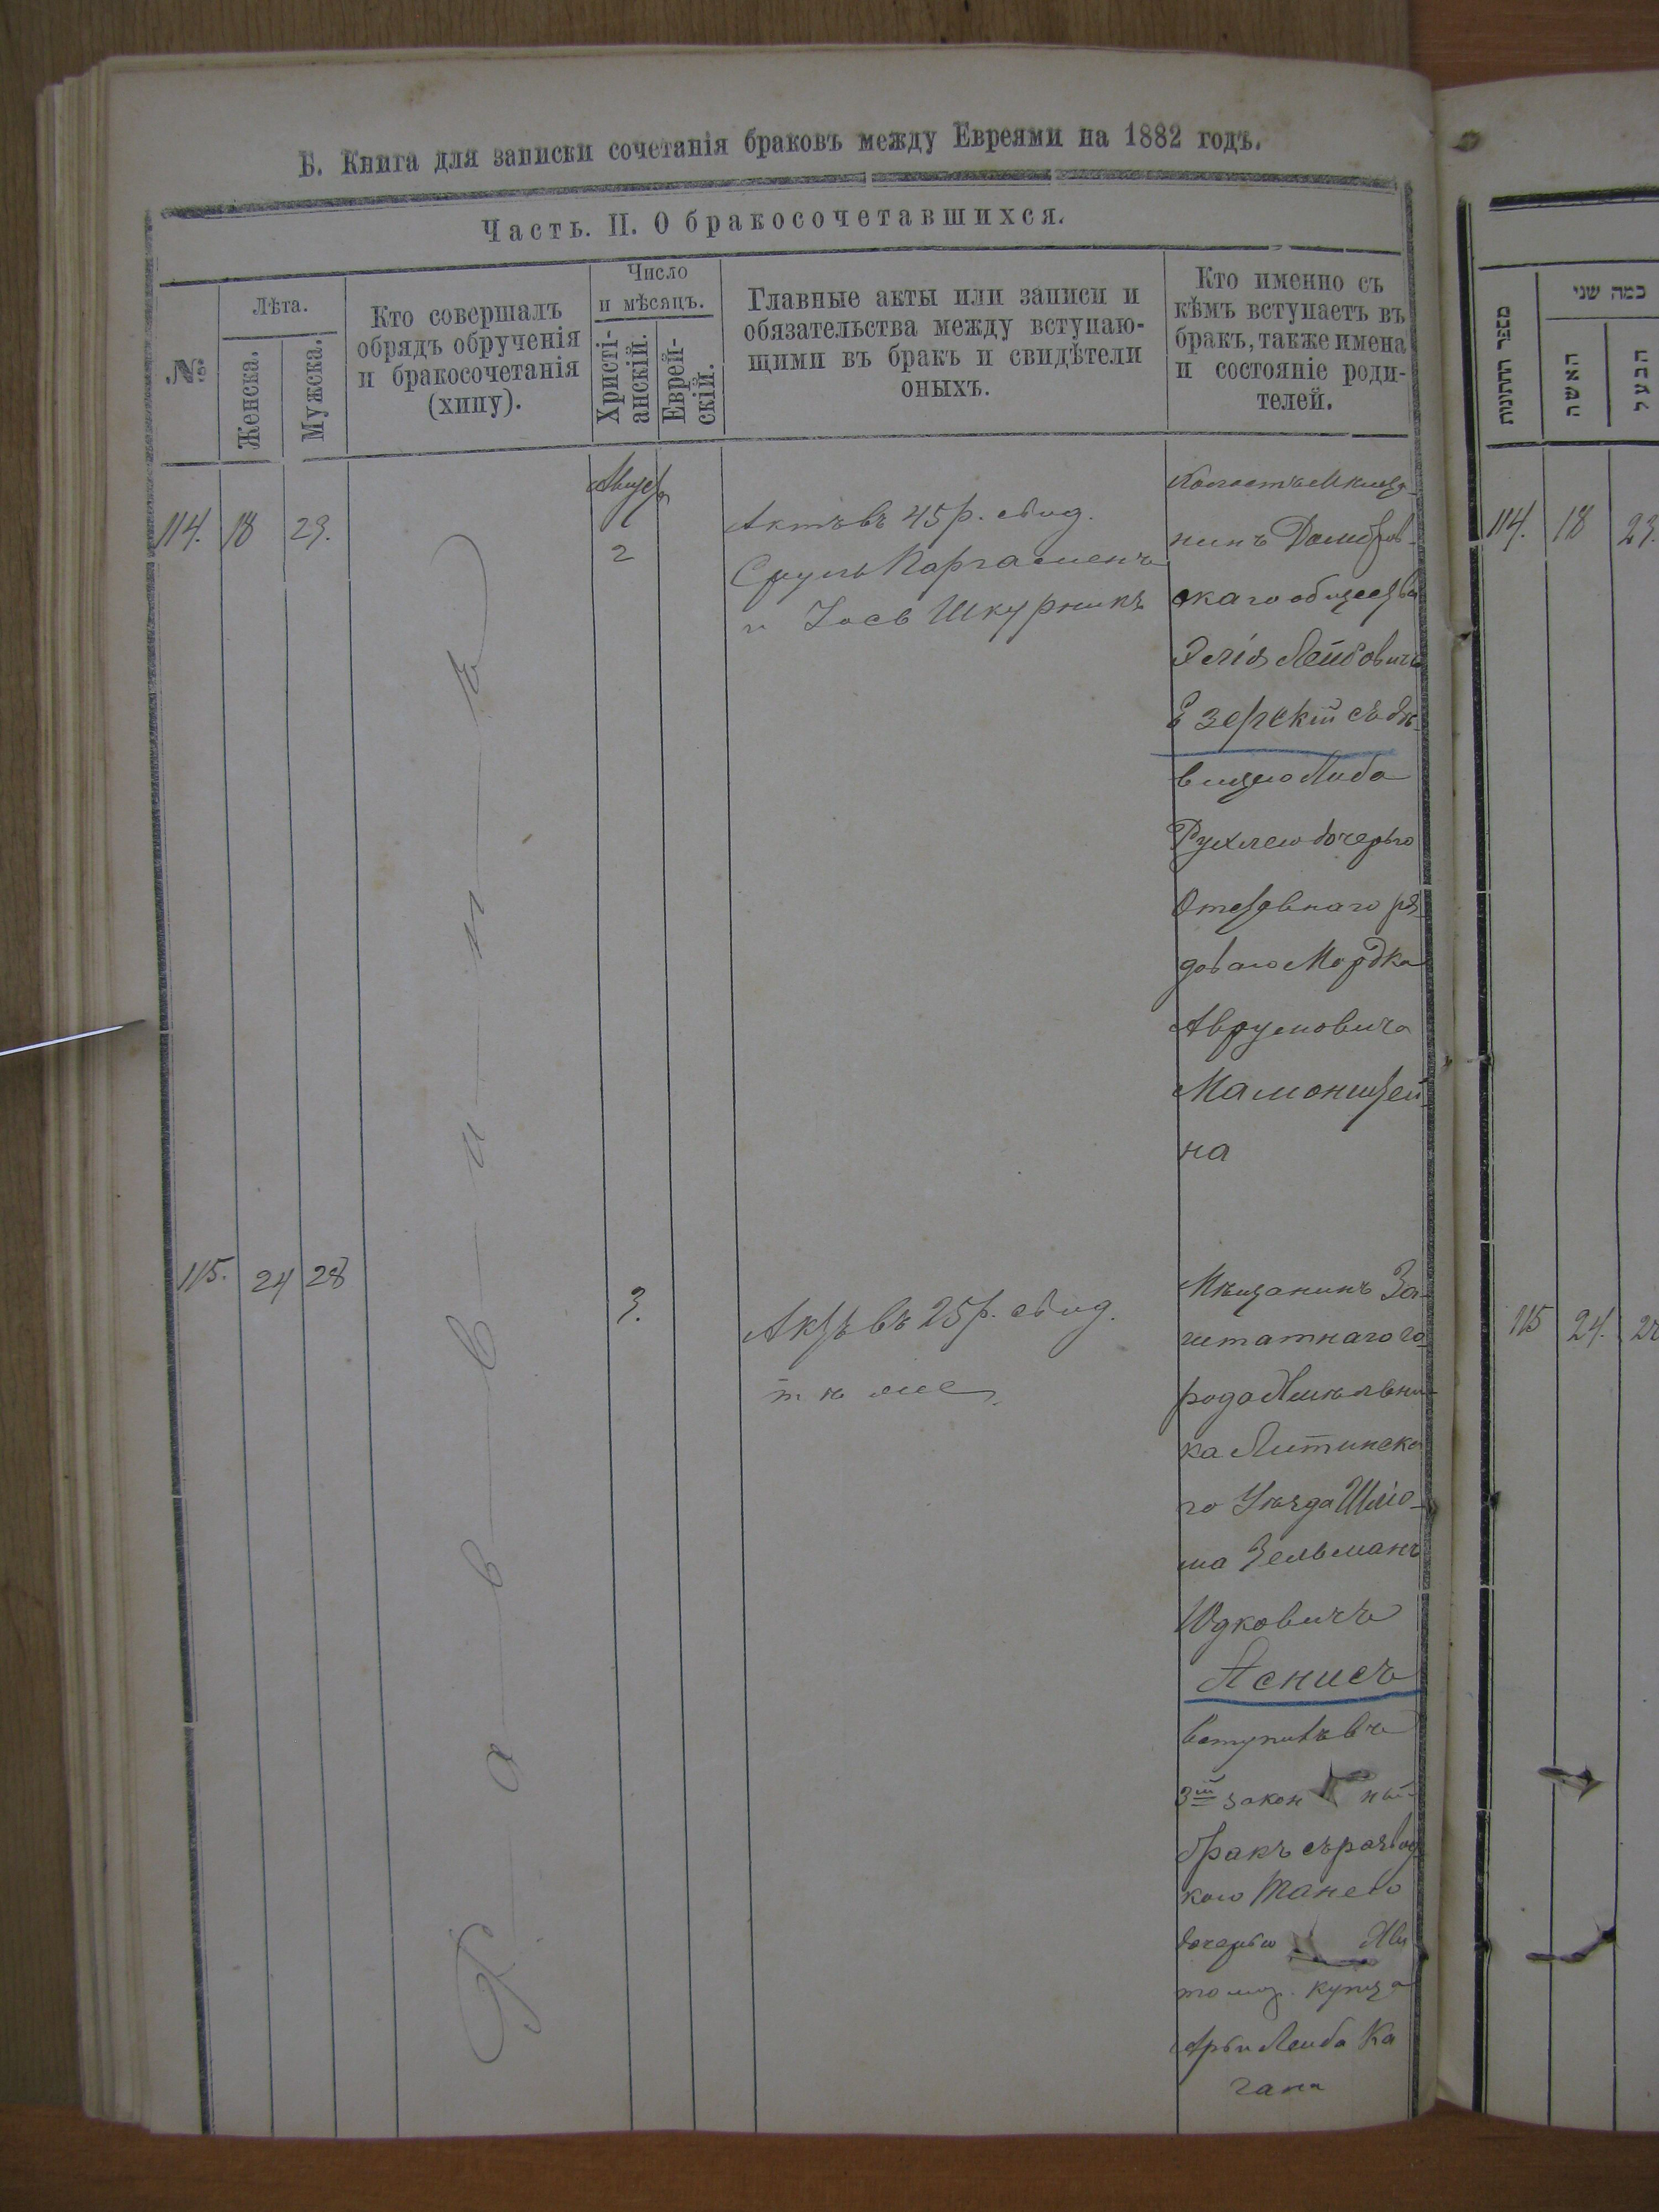 Б. Книга для записки сочетанія браковъ между Евреями на 1882 годъ.
Часть. II. О бракосочетавшихся.
№
Лѣта.
Женска.
Мужска.
Кто совершалъ
обрядъ обрученія
и бракосочетанія
(хипу).
Число
и мѣсяцъ.
Христі-
анскій.
Еврей-
скій.
Главные акты или записи и
обязательства между вступаю-
щими въ бракъ и свидѣтели
оныхъ.
Кто именно съ
кѣмъ вступаетъ въ
бракъ, также имена
и состояніе роди-
телей.
מספר החתונות
כמה שני
האשה
הבעל
Раввинъ
114. 18 23.
Август
2
Актъ въ 45 р. свид.
Сруль Паргаменъ
и Іось Шкурникъ
Холостъ Мѣща-
нинъ Домбров-
скаго общества
Элія Лейбовичъ
Езерскій съ дѣ-
вицею Либа
Рухлею дочерью
Отставнаго ря-
доваго Мордка
Аврумовича
Мамонштей-
на
114. 18 23.
115. 24 28
3.
Актъ въ 25 р. свид.
тѣ же
Мѣщанинъ За-
штатнаго го-
рода Хмѣльни-
ка Литинска
го Уѣзда Шлio-
ма Зельманъ
Юдковичъ
Яснисъ
вступилъ въ
3ій закон ный
бракъ съ развод
кою Танею
дочерью Жи
томир. купца
Арьи Лейба Ка
гана
115 24. 28